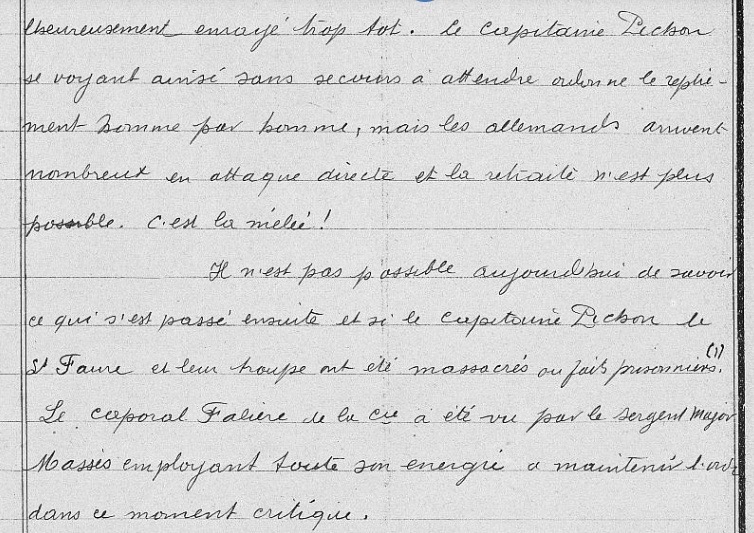 heureusement enrayé trop tot. le capitaine Pichon
se voyant ainsi sans secours à attendre ordonne le replie-
ment homme par homme, mais les allemands arrivent
nombreux en attaque directe et la retraite n'est plus
possible. C'est la mêlée!
Il n'est pas possible aujourd'hui de savoir
ce qui s'est passé ensuite et si le capitaine Pichon le
St Faure et leur troupe ont été massacrés ou faits prisonniers. (1)
Le caporal Falière de la Cie a été vu par le sergent Major
Massés employant toute son energie a maintenir l'ordre
dans ce moment critique.